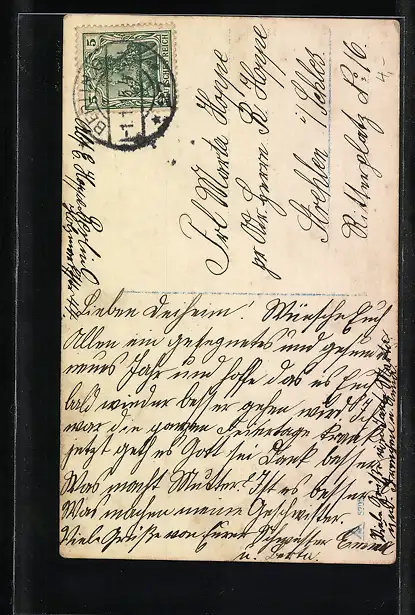 5 DEUTSCHES REICH 5
BERLIN
Frl Marta Hoppe
pr Adr. Herrn R Hoppe
Strehlen i/Schles
Ritterplatz No 16.
4,-
Lieben Deiheim. Wünsche Euch
Allen ein gesegnetes und gesundes
neues Jahr und hoffe das es Euch
bald wieder besser gehen wird Ich
war die ganzen Feiertage krank
jetzt geht es Gott sei Dank besser.
Was macht Mutter? Ist es besser
Was machen meine Geschwister.
Viele Grüße von Eurer Schwester Emma
u. Berta.